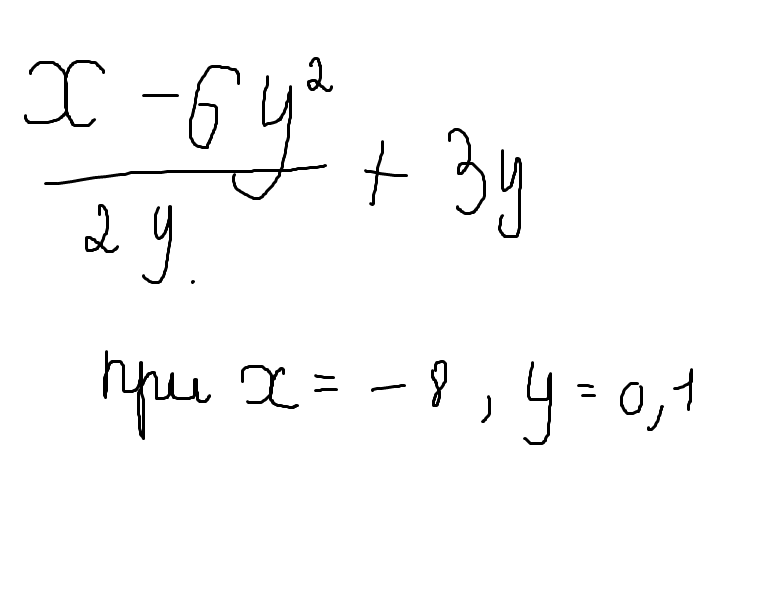 x - 6y²
2y.
+ 3y
при x = - 8, y = 0,1